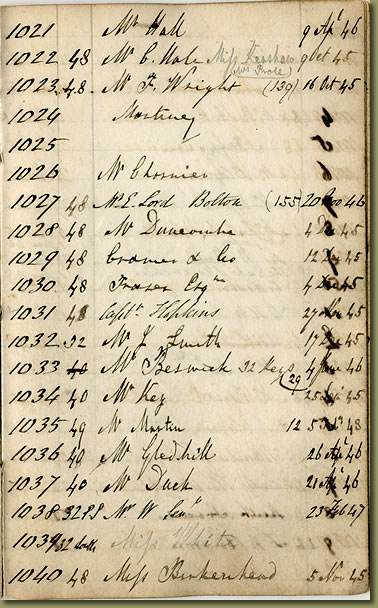 1021 Mr Hall 9 Apl 46
1022 48 Mr C. Hale Miss Kershaw 9 Oct 45
1023 48 Mr F. Wright (139) 16 Oct 45
1024
1025
1026 Mr
1027 48 Mr E. Lord Bolton (155 20 46
1028 48 Mr Duncombe 4 45
1029 48 Cramer & Co 12 45
1030 48 Fraser Esqre 4 45
1031 48 Captn Hopkins 27 45
1032 32 Mr J Smith 17 45
1033 40 Mr Beswick 32 Keys 4 46
29
1034 40 Mr Key 25 45
1035 49 Mr Martin 12 5 48
1036 40 Mr Gledhill 26 Apl 46
1037 40 Mr Duck 21 Apl 46
1038 32 PS Mr W 23 Feb 47
1039 32 Miss White
1040 48 Miss Birkenhead 5 Nov 45